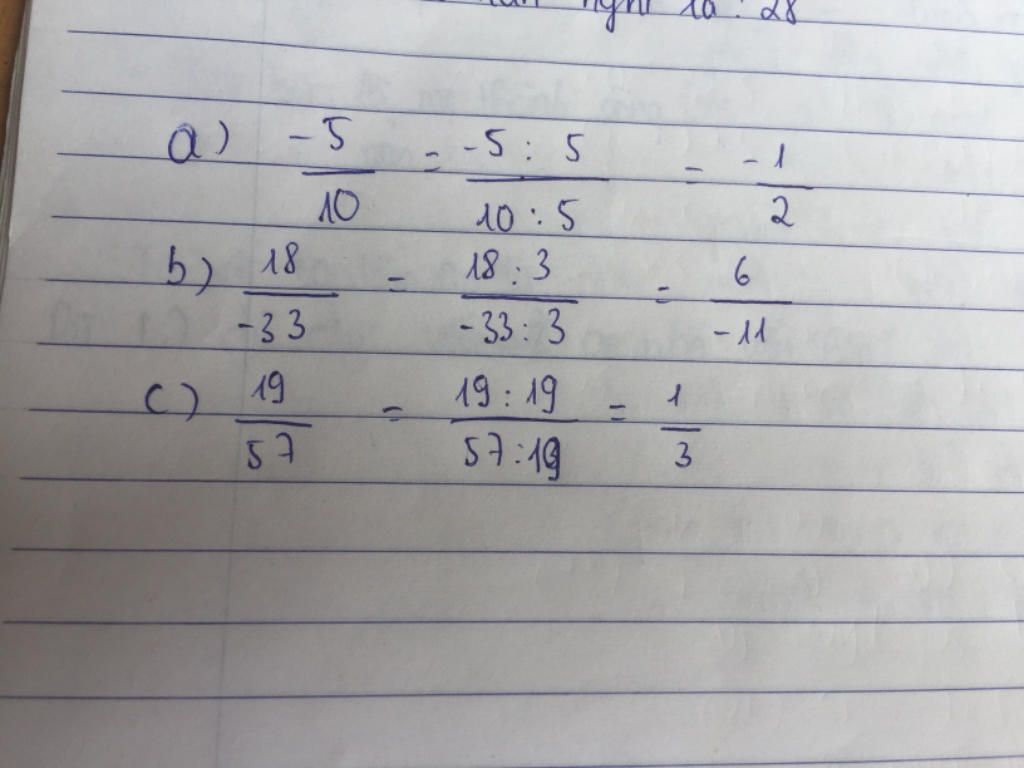 là : 28
a) -5/10 = -5 : 5/10 : 5 = -1/2
b) 18/-33 = 18 : 3/-33 : 3 = 6/-11
c) 19/57 = 19 : 19/57 : 19 = 1/3